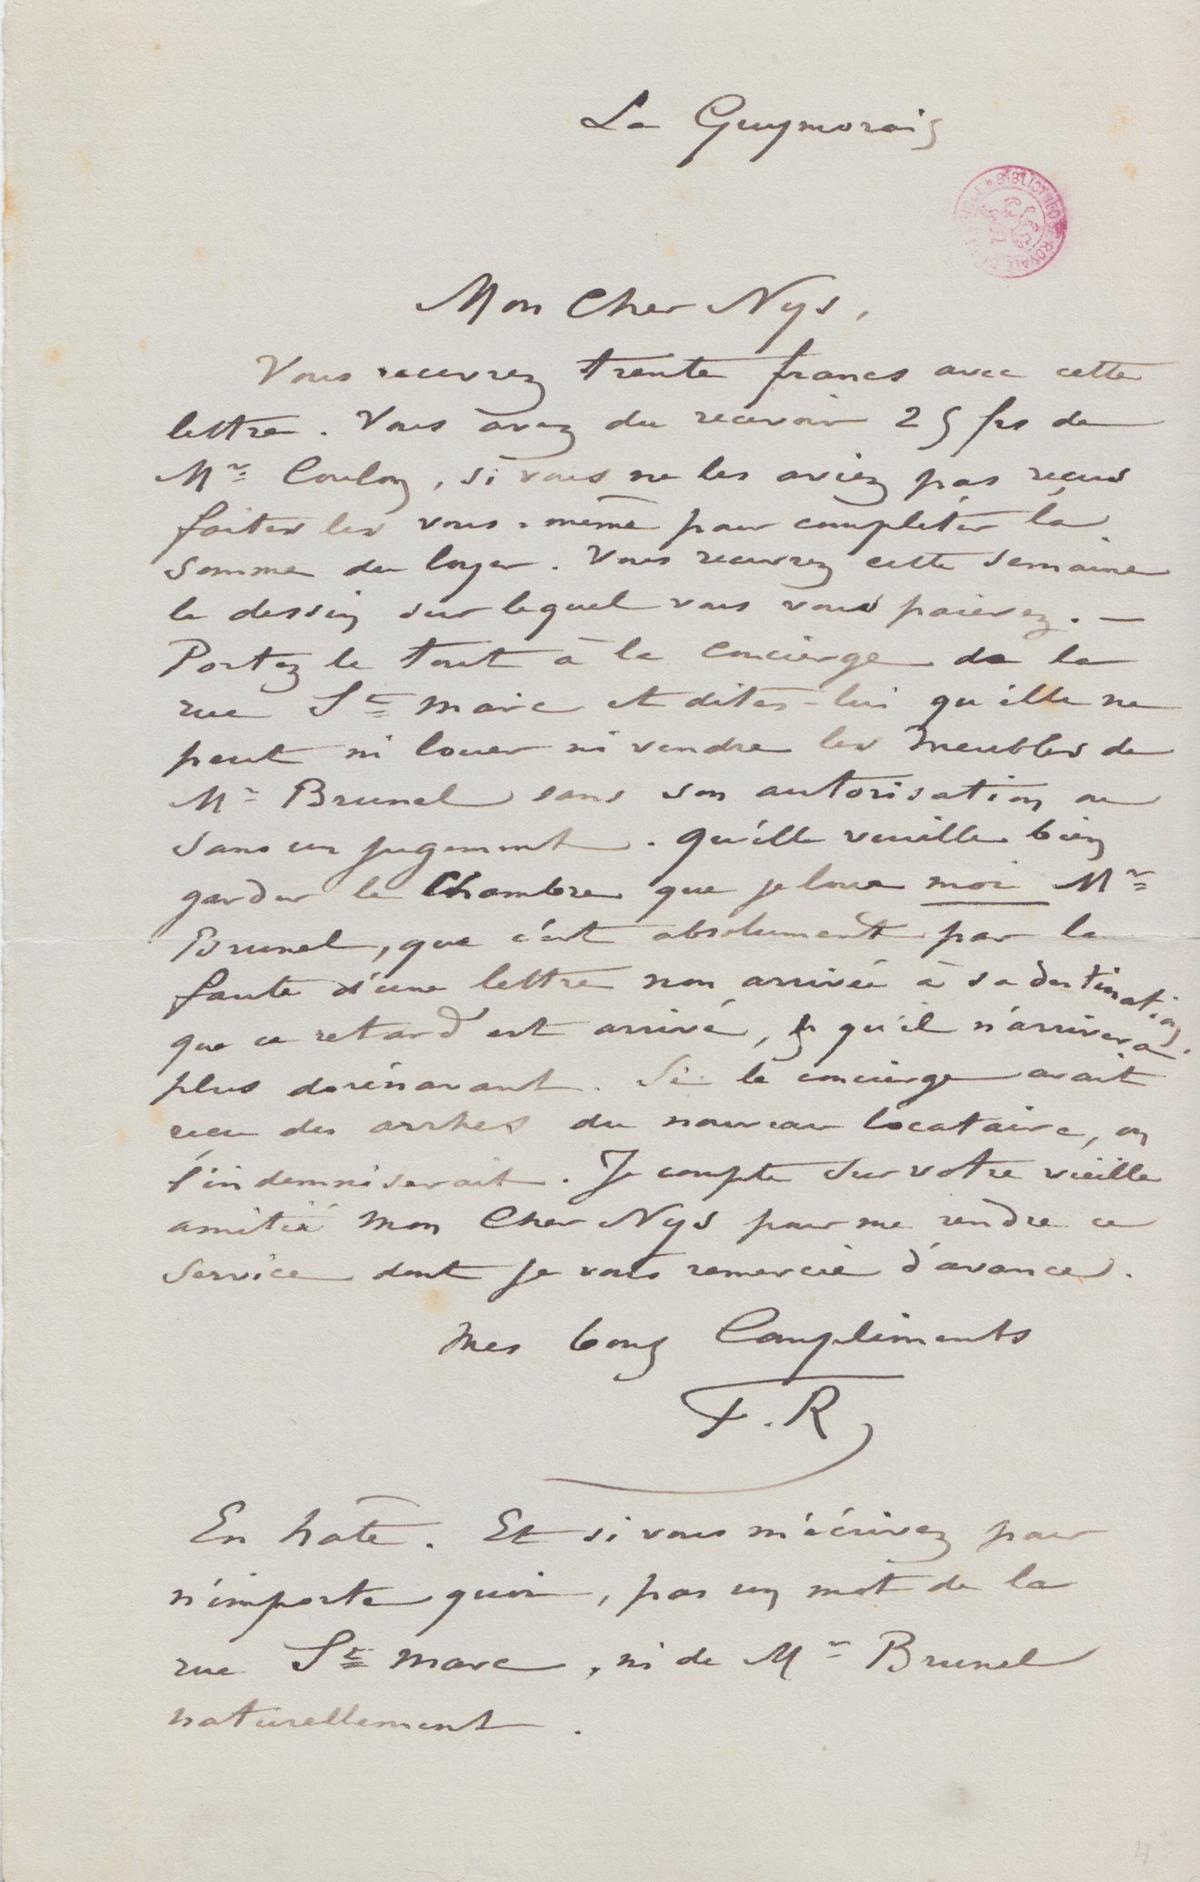 La Guymorais
BIBLIOTHÈQUE ROYALE
Mon Cher Nys,
Vous recevrez trente francs avec cette
lettre. Vous avez du recevoir 25 frs de
Mr Coulon, si vous ne les aviez pas reçus
faites les vous-même pour compléter la
somme du loyer. Vous recevrez cette semaine
le dessin sur lequel vous vous paierez. —
Portez le tout à la Concierge de la
rue St marc et dites-lui qu'elle ne
peut ni louer ni vendre les meubles de
Mr Brunel sans son autorisation ou
sans un jugement. Qu'elle veuille bien
garder la Chambre que je loue moi Mr
Brunel, que c'est absolument par la
faute d'une lettre non arrivée à sa destination
que ce retard est arrivé, & qu'il n'arrivera
plus dorénavant. Si la concierge avait
reçu des arrhes du nouveau locataire, on
l'indemniserait. Je compte sur votre vieille
amitié mon Cher Nys pour me rendre ce
service dont je vous remercie d'avance.
Mes bons Compliments
F.R
En hâte. Et si vous m'écrivez pour
n'importe quoi, pas un mot de la
rue St marc, ni de Mr Brunel
naturellement.
4